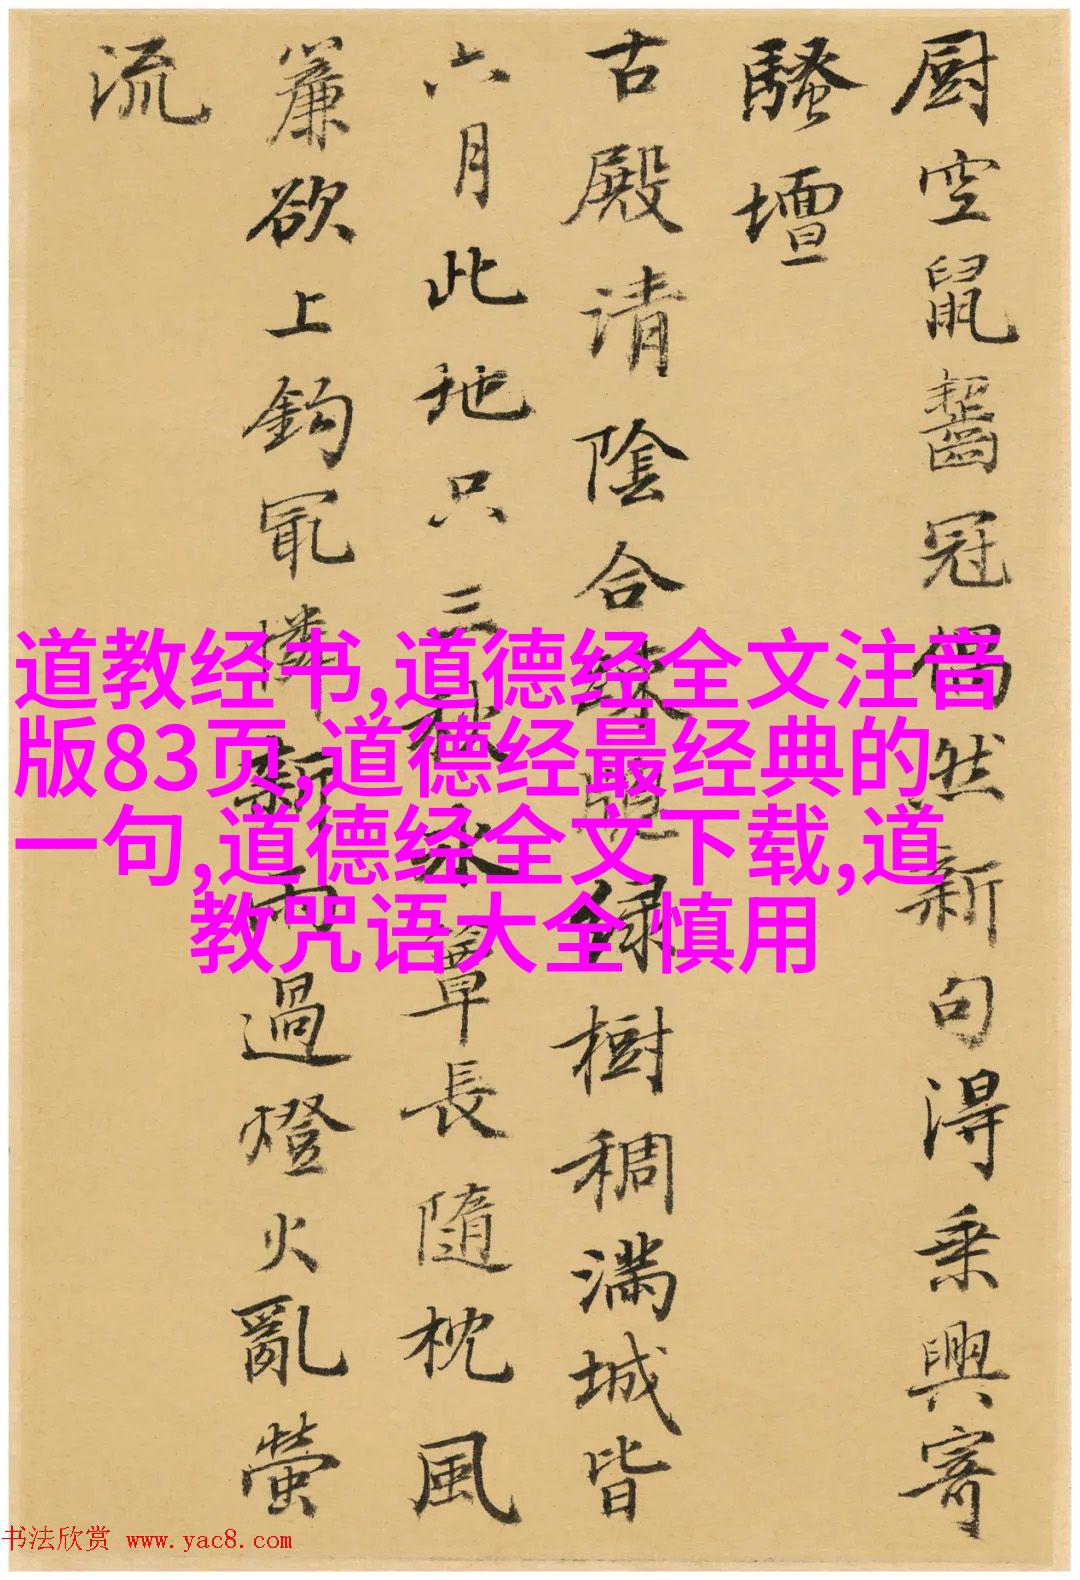 厨空鼠齧冠偶然新句得乘興寄
騷壇
古殿清陰合疎緑樹稠滿城皆
六月此地只三秋冰簟長隨枕風
簾欲上鈎冣憐新雨過燈火亂螢
流
道教经书,道德经全文注音
版83页,道德经最经典的
一句,道德经全文下载,道
教咒语大全 慎用
书法欣赏 www.yac8.com